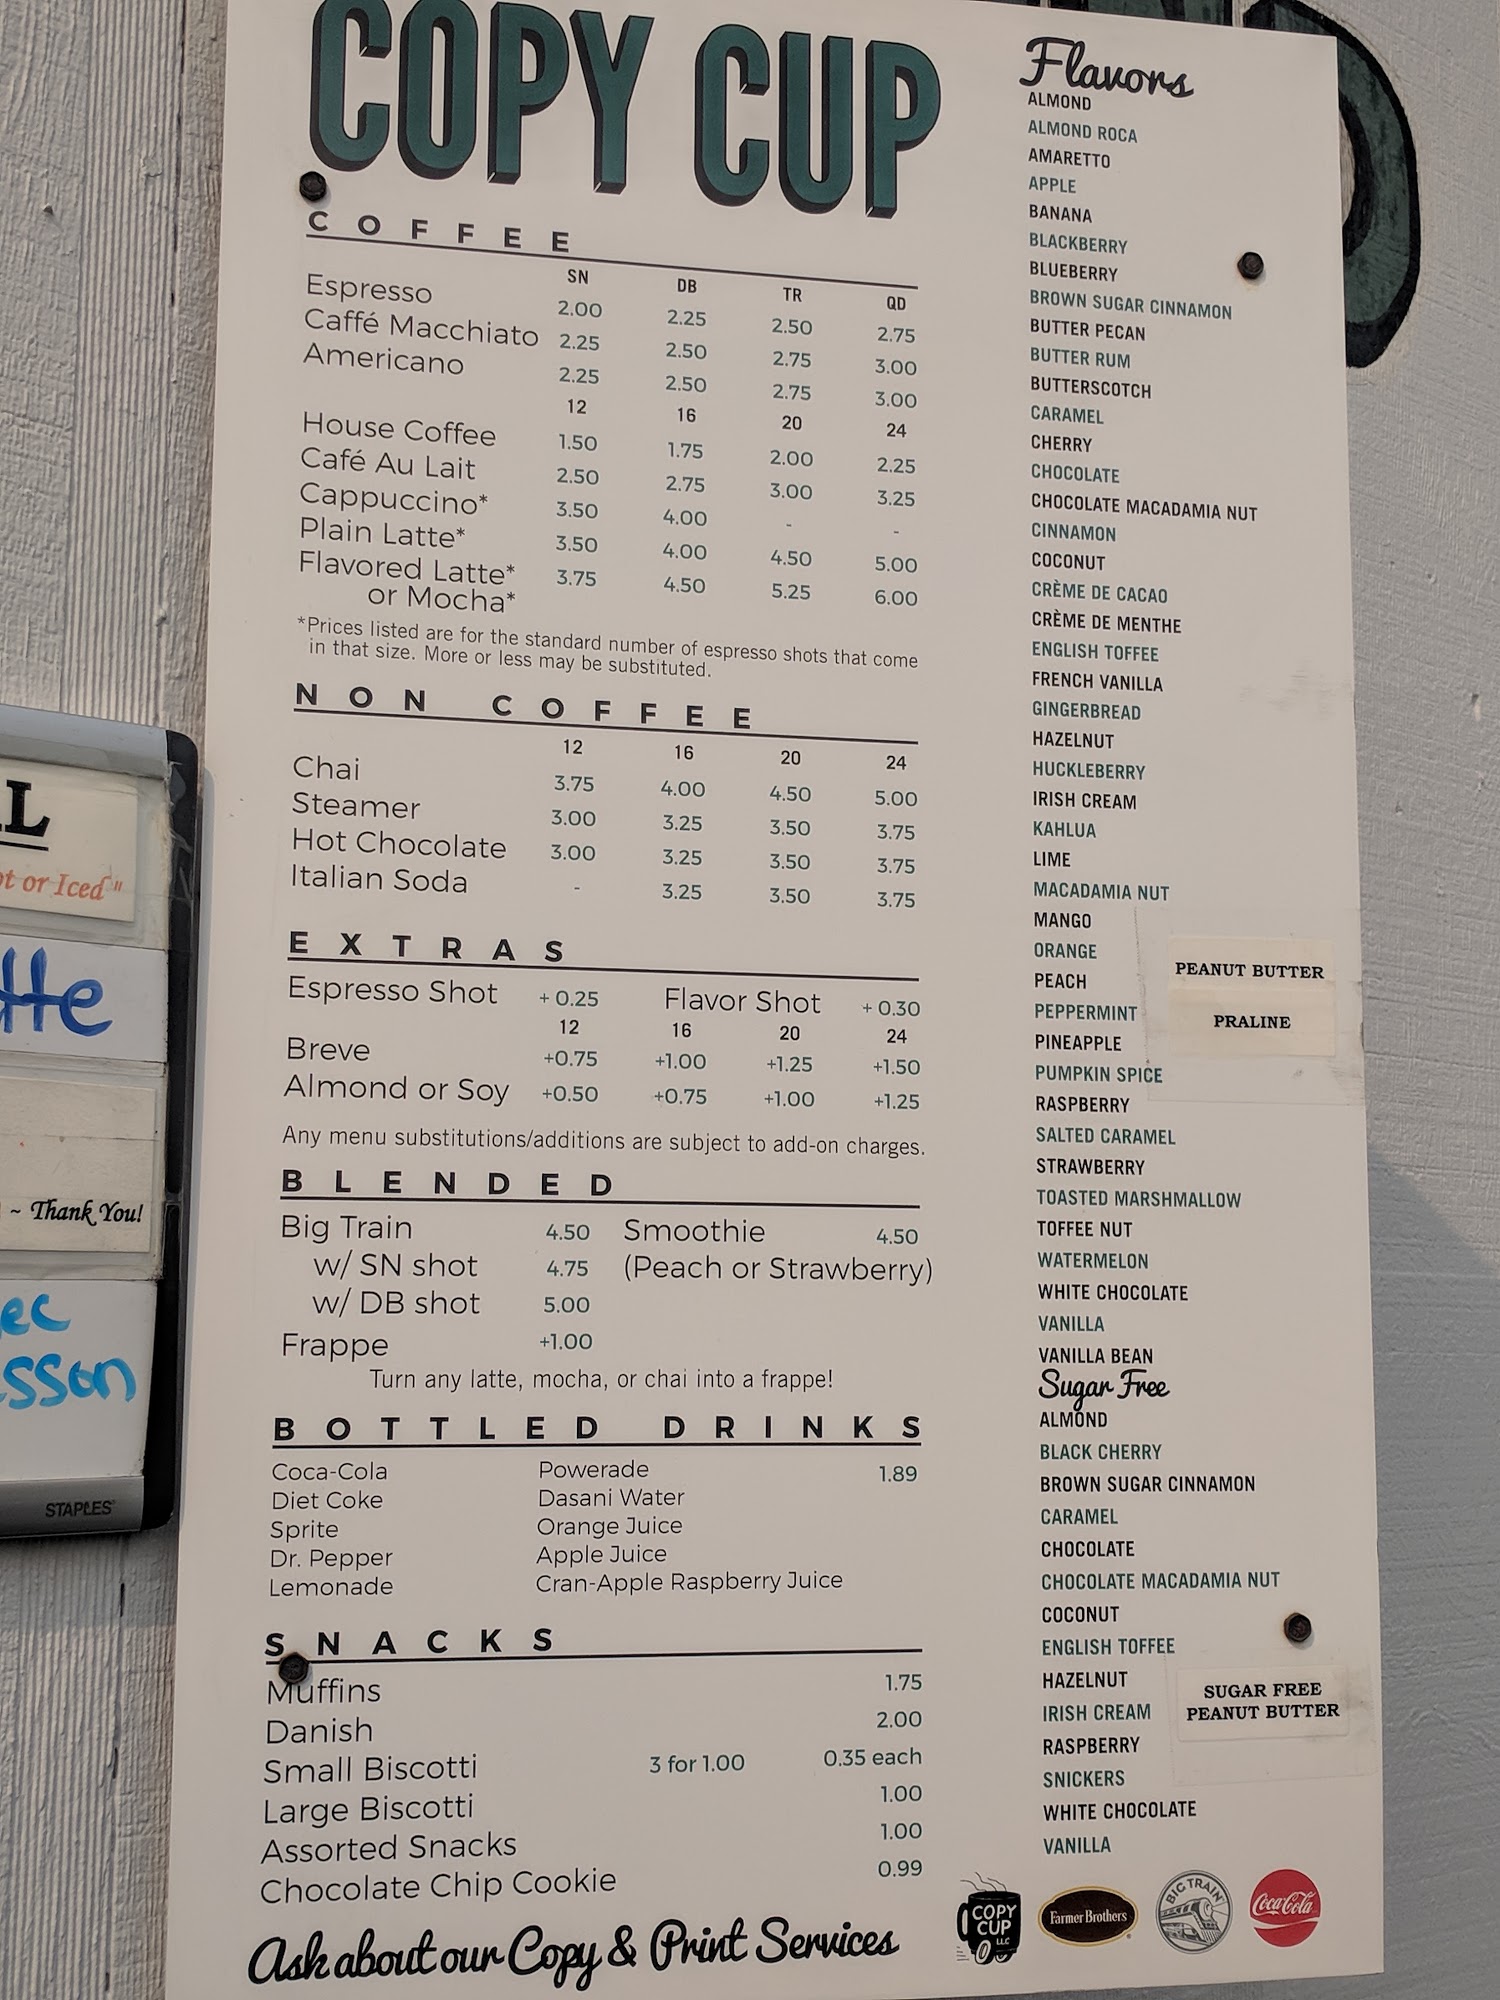 COPY CUP
COFFEE
SN DB TR QD
Espresso 2.00 2.25 2.50 2.75
Caffé Macchiato 2.25 2.50 2.75 3.00
Americano 2.25 2.50 2.75 3.00
12 16 20 24
House Coffee 1.50 1.75 2.00 2.25
Café Au Lait 2.50 2.75 3.00 3.25
Cappuccino* 3.50 4.00 - -
Plain Latte* 3.50 4.00 4.50 5.00
Flavored Latte* 3.75 4.50 5.25 6.00
or Mocha*
*Prices listed are for the standard number of espresso shots that come
in that size. More or less may be substituted.
NON COFFEE
12 16 20 24
Chai 3.75 4.00 4.50 5.00
Steamer 3.00 3.25 3.50 3.75
Hot Chocolate 3.00 3.25 3.50 3.75
Italian Soda - 3.25 3.50 3.75
EXTRAS
Espresso Shot + 0.25 Flavor Shot + 0.30
12 16 20 24
Breve +0.75 +1.00 +1.25 +1.50
Almond or Soy +0.50 +0.75 +1.00 +1.25
Any menu substitutions/additions are subject to add-on charges.
BLENDED
Big Train 4.50 Smoothie 4.50
w/ SN shot 4.75 (Peach or Strawberry)
w/ DB shot 5.00
Frappe +1.00
Turn any latte, mocha, or chai into a frappe!
BOTTLED DRINKS
Coca-Cola Powerade 1.89
Diet Coke Dasani Water
Sprite Orange Juice
Dr. Pepper Apple Juice
Lemonade Cran-Apple Raspberry Juice
SNACKS
Muffins 1.75
Danish 2.00
Small Biscotti 3 for 1.00 0.35 each
Large Biscotti 1.00
Assorted Snacks 1.00
Chocolate Chip Cookie 0.99
Ask about our Copy & Print Services
Flavors
ALMOND
ALMOND ROCA
AMARETTO
APPLE
BANANA
BLACKBERRY
BLUEBERRY
BROWN SUGAR CINNAMON
BUTTER PECAN
BUTTER RUM
BUTTERSCOTCH
CARAMEL
CHERRY
CHOCOLATE
CHOCOLATE MACADAMIA NUT
CINNAMON
COCONUT
CRÈME DE CACAO
CRÈME DE MENTHE
ENGLISH TOFFEE
FRENCH VANILLA
GINGERBREAD
HAZELNUT
HUCKLEBERRY
IRISH CREAM
KAHLUA
LIME
MACADAMIA NUT
MANGO
ORANGE
PEACH
PEPPERMINT
PINEAPPLE
PUMPKIN SPICE
RASPBERRY
SALTED CARAMEL
STRAWBERRY
TOASTED MARSHMALLOW
TOFFEE NUT
WATERMELON
WHITE CHOCOLATE
VANILLA
VANILLA BEAN
PEANUT BUTTER
PRALINE
Sugar Free
ALMOND
BLACK CHERRY
BROWN SUGAR CINNAMON
CARAMEL
CHOCOLATE
CHOCOLATE MACADAMIA NUT
COCONUT
ENGLISH TOFFEE
HAZELNUT
IRISH CREAM
RASPBERRY
SNICKERS
WHITE CHOCOLATE
VANILLA
SUGAR FREE
PEANUT BUTTER
COPY
CUP
LLC
Farmer Brothers
BIG TRAIN
Coca-Cola
or Iced"
~ Thank You!
STAPLES